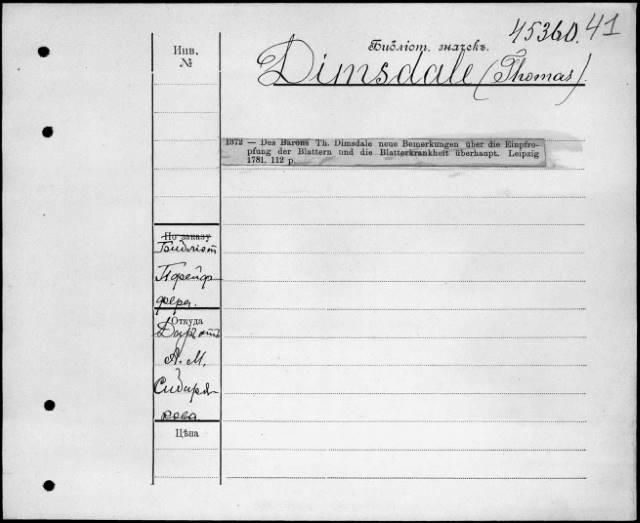 45360.41
Инв.
№
Библіот. значекъ.
Dimsdale (Thomas).
1372 — Des Barons Th. Dimsdale neue Bemerkungen über die Einpfro-
pfung der Blattern und die Blatterkrankheit überhaupt. Leipzig
1781. 112 p.
По заказу
Библіот
Пфейф-
фера.
Откуда
Даръ отъ
А. М.
Сибиря-
кова.
Цѣна